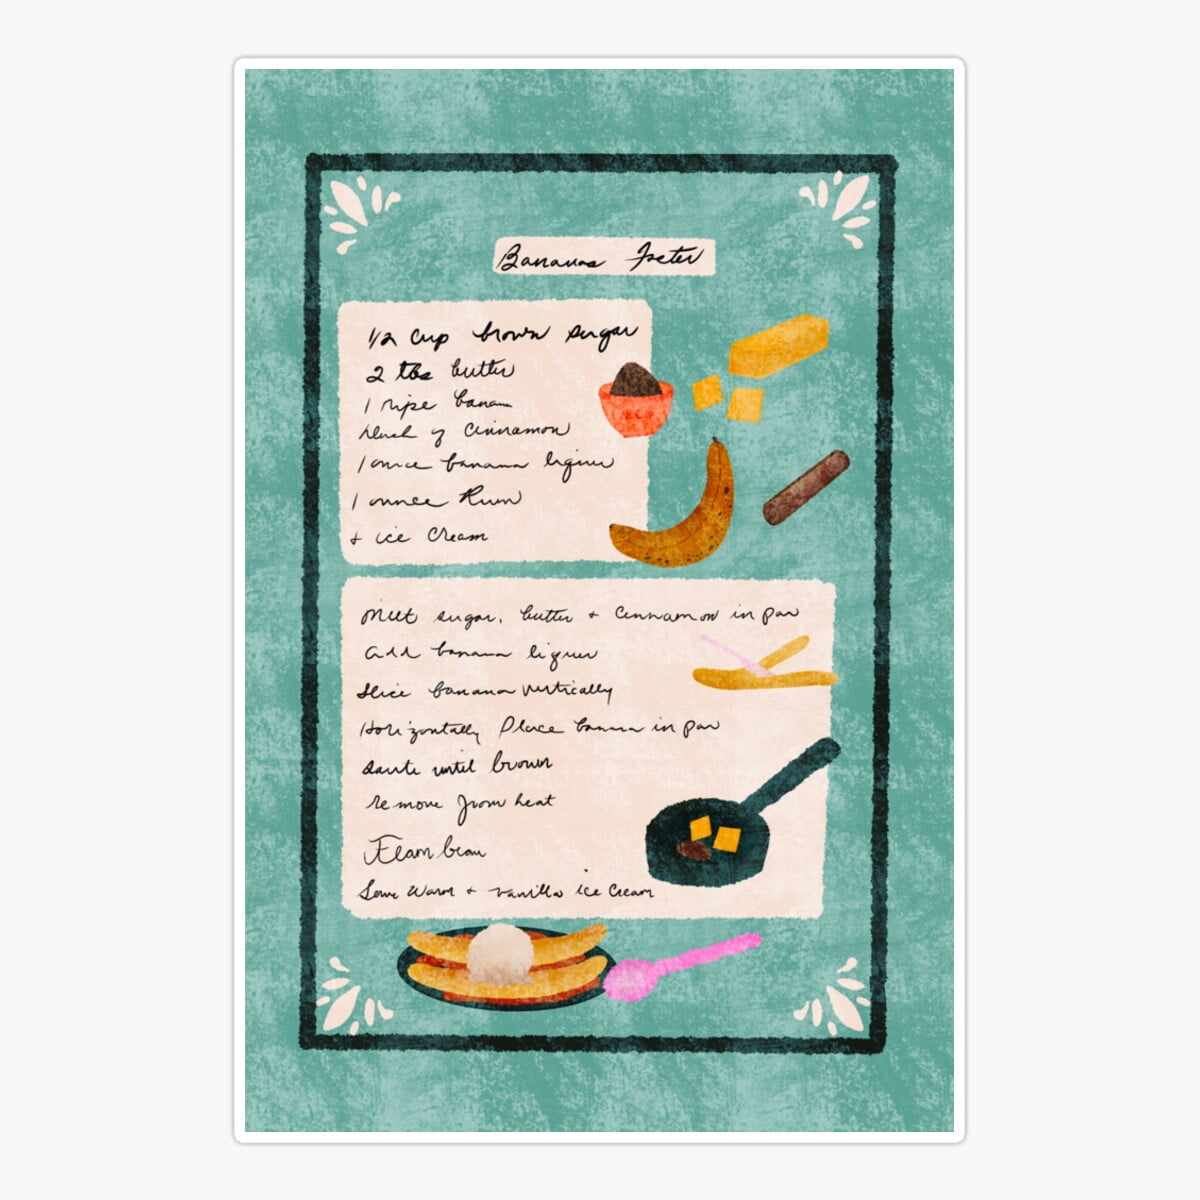 Bananas Foster
1/2 cup brown sugar
2 tbs butter
1 ripe banana
dash of cinnamon
1 ounce banana liquer
1 ounce Rum
+ ice cream
Melt sugar, butter + cinnamon in pan
add banana liquer
slice banana vertically
Horizontally Place banana in pan
saute until brown
remove from heat
Flambeau
Serve warm + vanilla ice cream